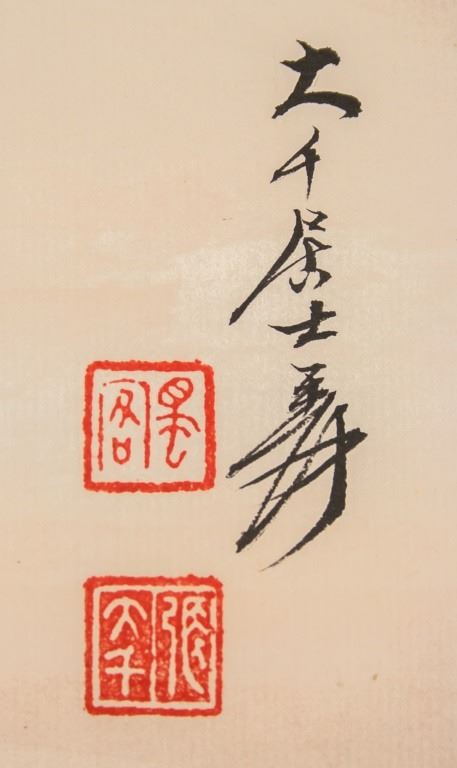 大千居士爰
張大千